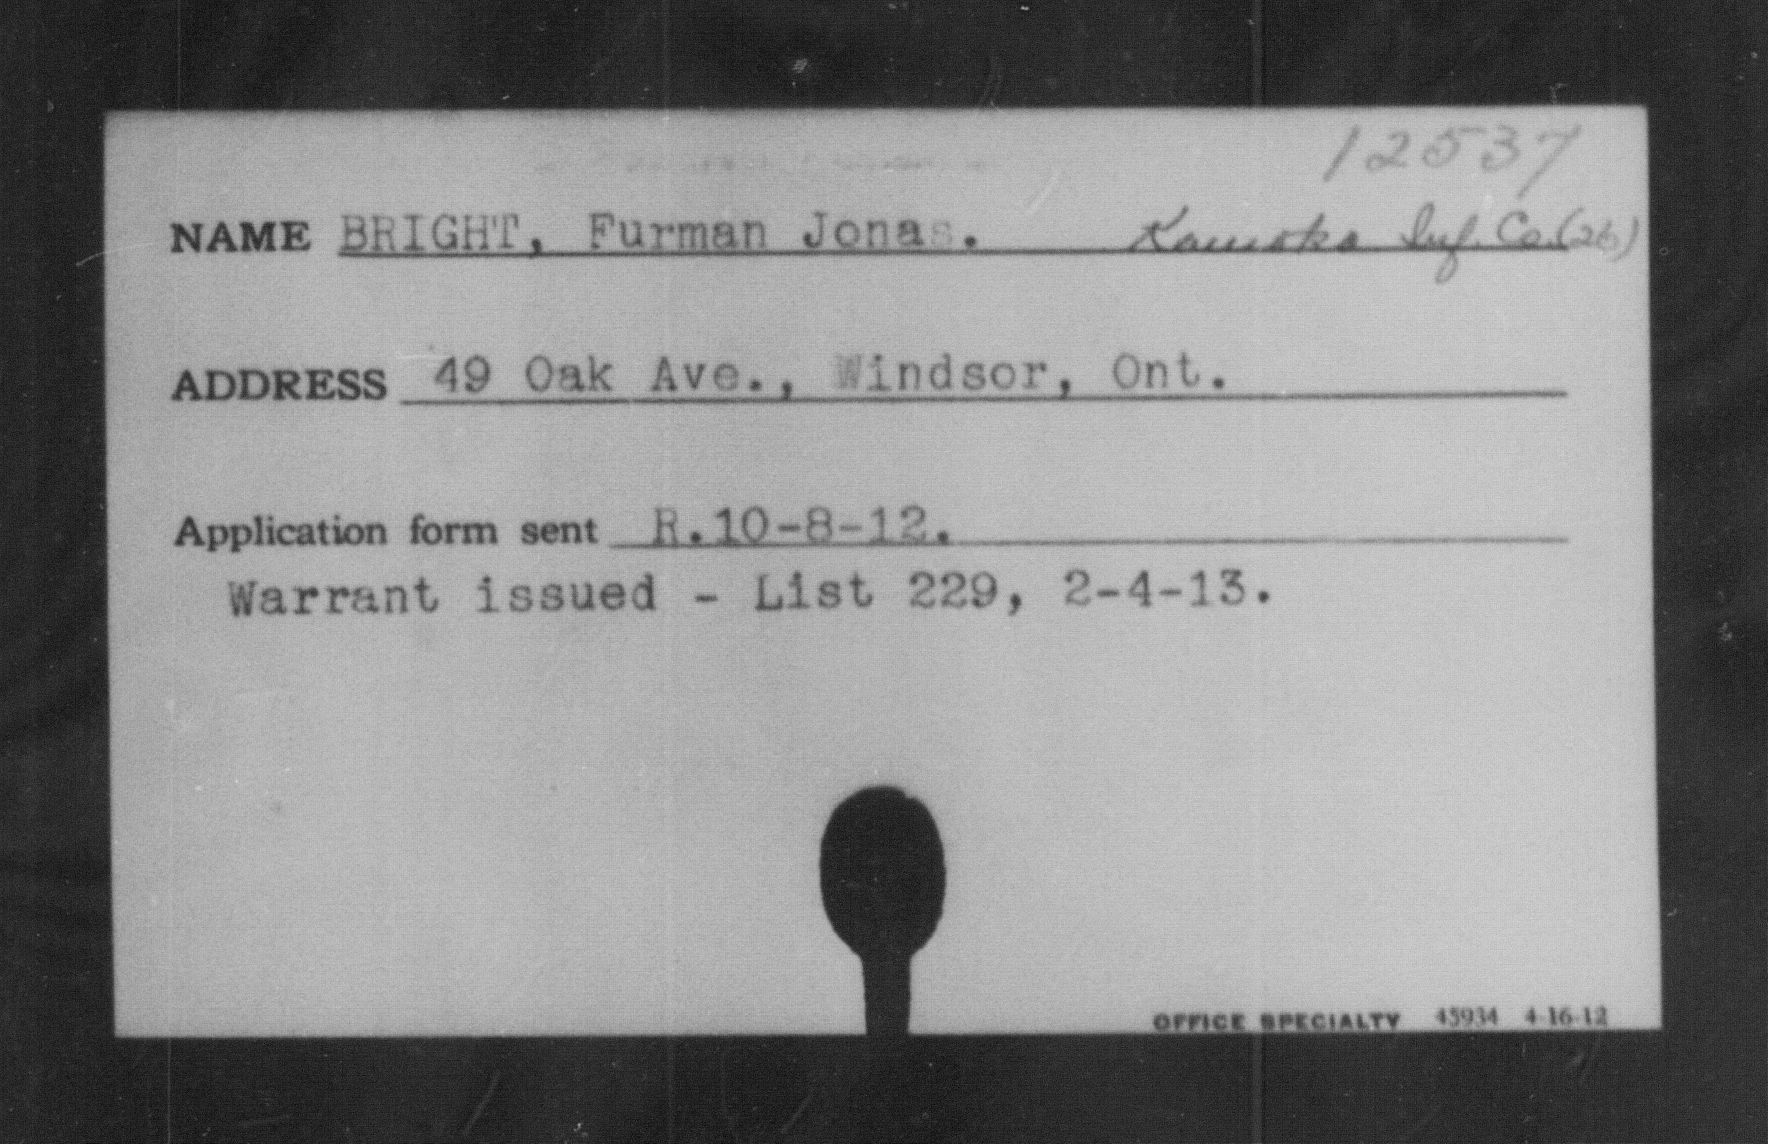 12537
NAME BRIGHT, Furman Jonas. Komoka Inf. Co. (26)
ADDRESS 49 Oak Ave., Windsor, Ont.
Application form sent R.10-8-12.
Warrant issued - List 229, 2-4-13.
OFFICE SPECIALTY 45934 4-16-12